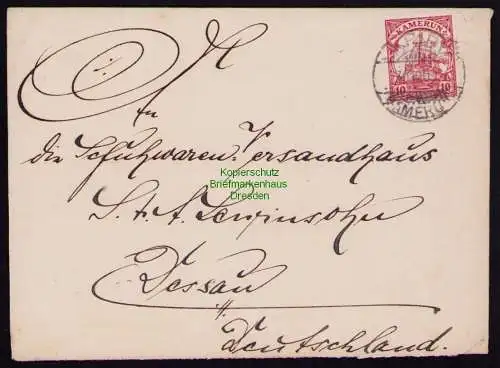 KAMERUN
10 10
KAMERUN
An
die Schuhwaren-Versandhaus
Kopierschutz
Briefmarkenhaus
Dresden
S. & A. Lewinsohn
Dessau
Deutschland.